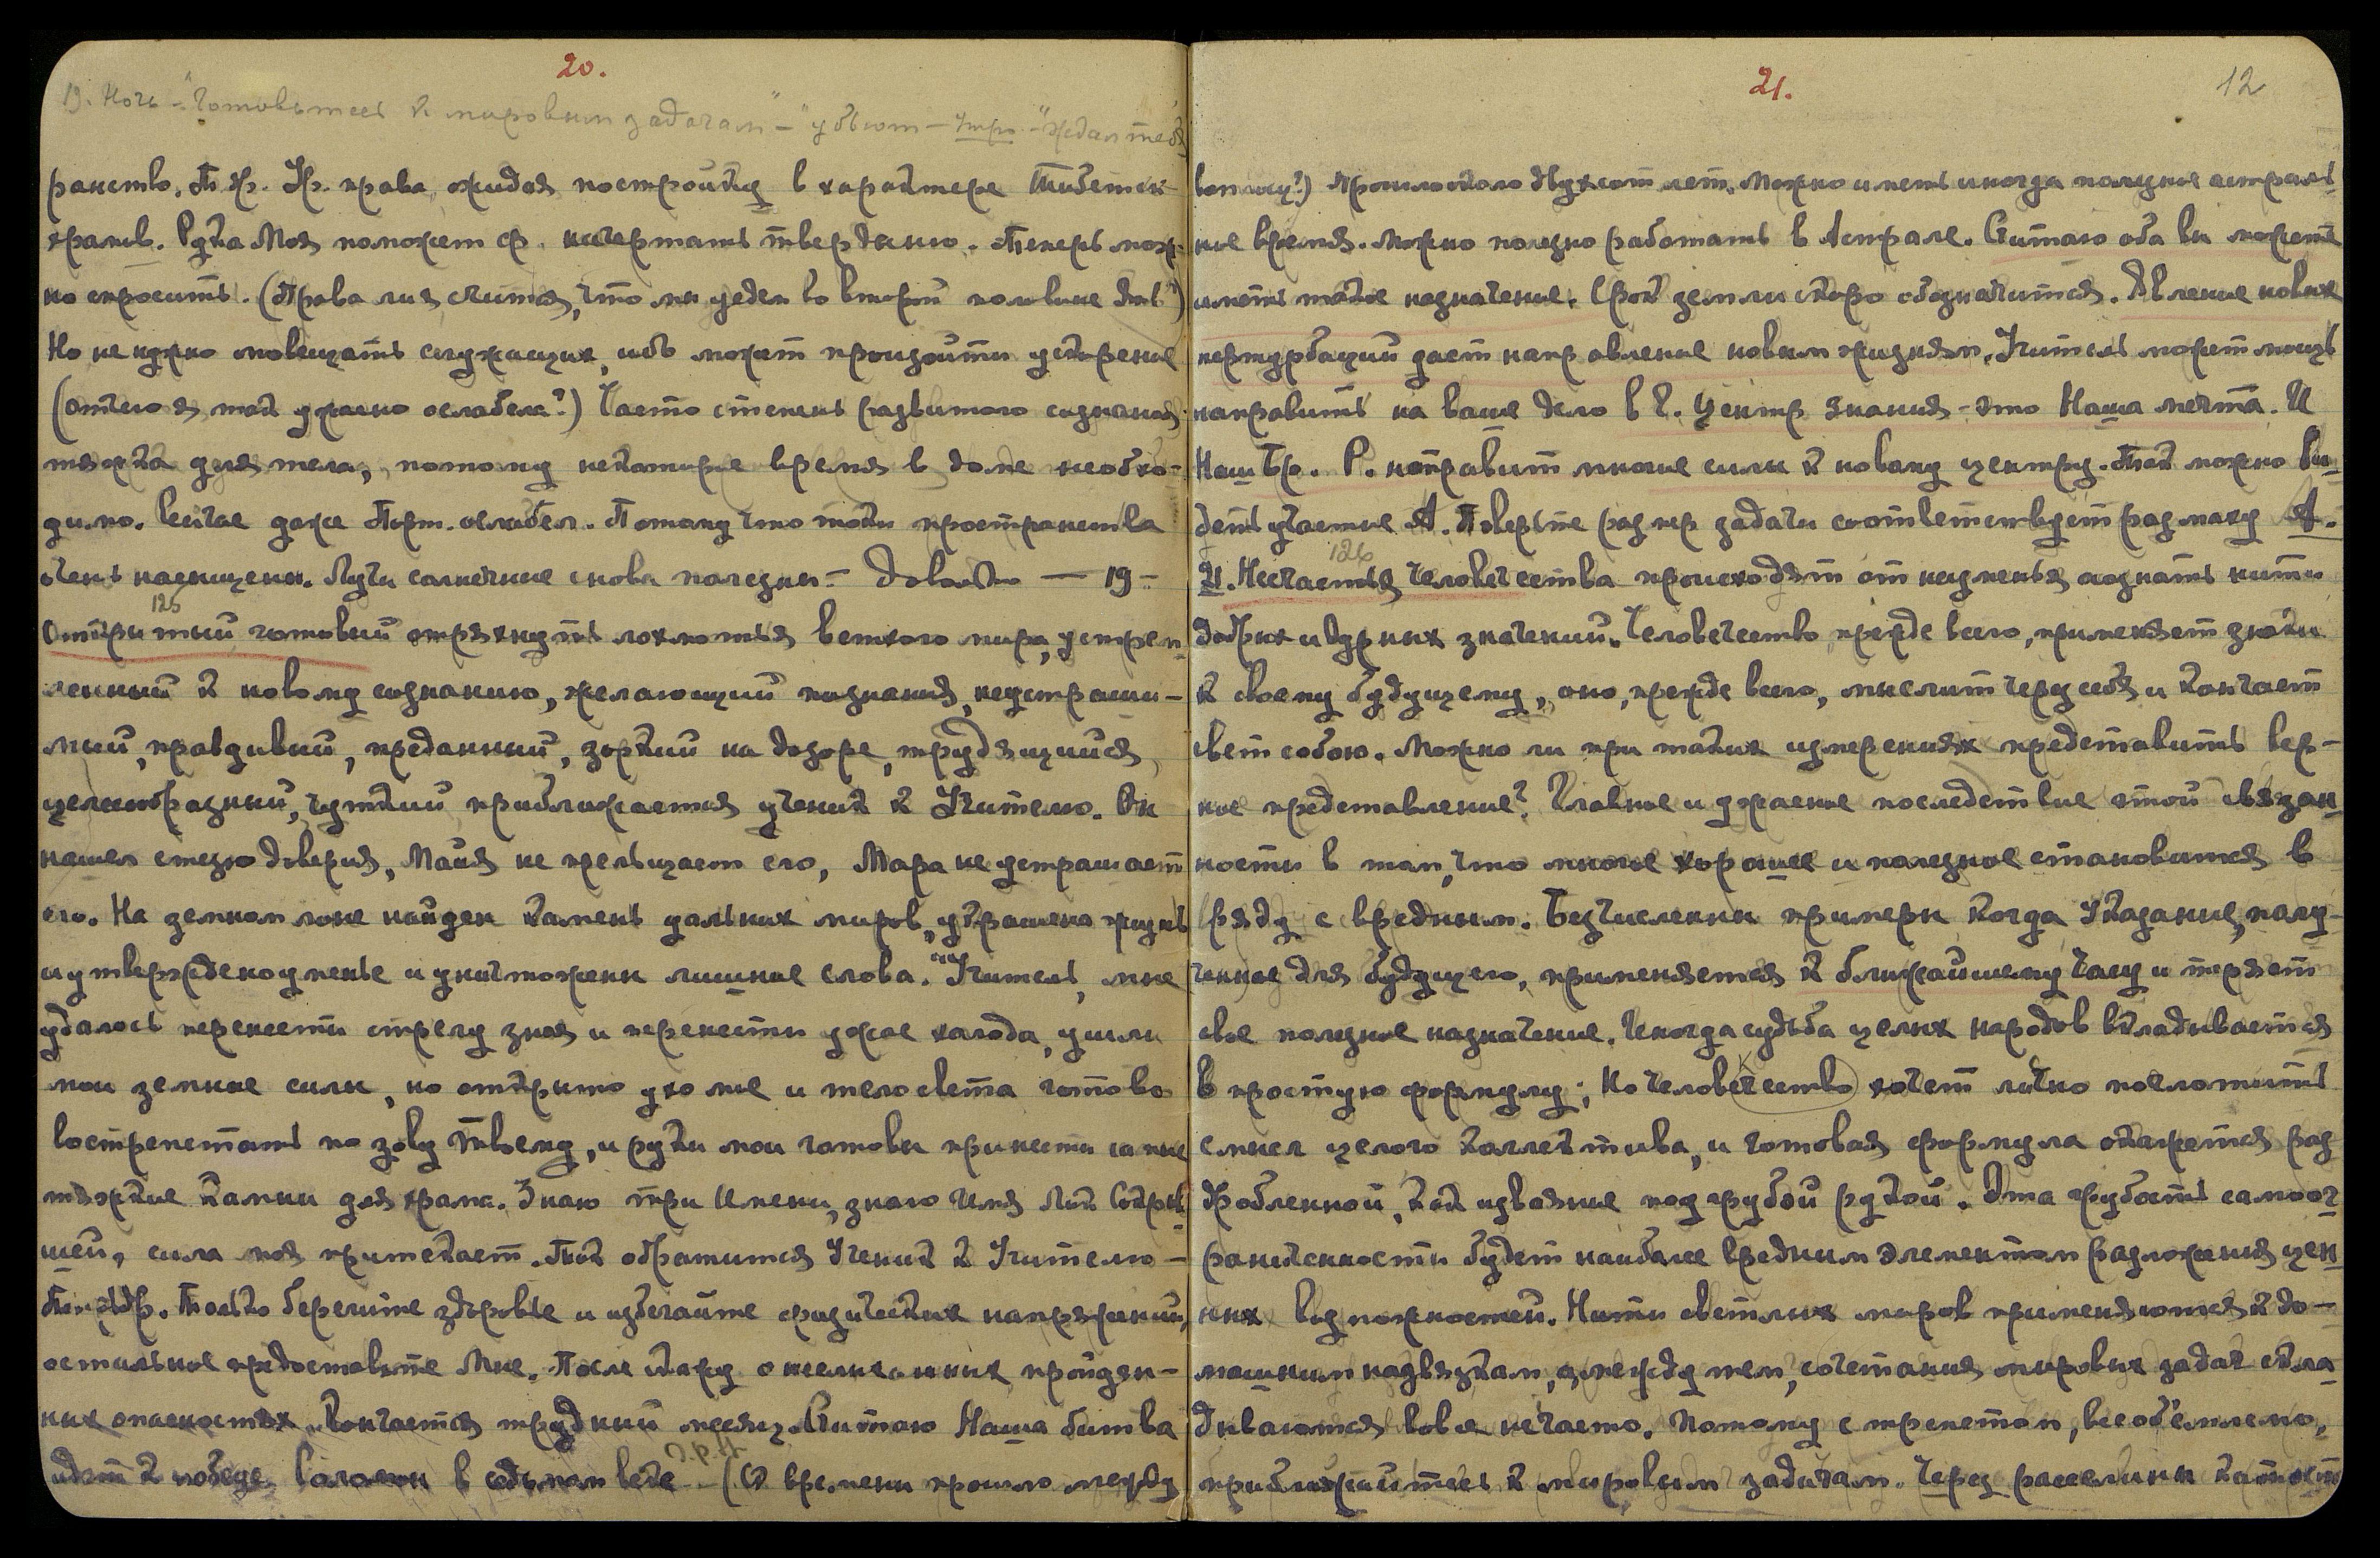 20.
19. Ночь - "Готовьтесь к мировым задачам" - "убьют - утро - "ждал тебя
ранство. Т. Ф. Ф. права, ожидая постройку в характере Тибетск-
храмов. Рука Моя поможет Ф. начертать твердыню. Теперь мож-
но спросить. (Права ли я, считая, что мы уедем во второй половине
Но не нужно посвящать служащих, ибо может произойти ускорение
(Отчего я так ужасно ослабела?) Часто степень развитого сознания
тяжка для тела, потому некоторое время в доме необхо-
димо. даже ослабел. Потому что токи пространства
очень насыщены. Лучи солнечные снова полезны - Довольно — 19 -
125
Открытый готовый отряхнуть лохмотья ветхого мира, устрем-
ленный к новому сознанию, желающий познания, неустраши-
мый, правдивый, преданный, зоркий на дозоре, трудящийся,
целесообразный, чуткий приближается ученик к Учителю. Он
нашел стезю доверия, Майя не прельщает его, Мара не устрашает
его. На земном лоне найден камень дальних миров, украшена жизнь
и утверждено уменье и уничтожены лишние слова. "Учитель, мне
удалось перенести стрелу зноя и перенести ужас холода, ушли
мои земные силы, но открыто ухо мое и тело света готово
вострепетать по зову Твоему, и руки мои готовы принести самые
тяжкие камни для храма. Знаю три Имени, знаю Имя Лик Сокрыв-
шей, сила моя притекает. Так обратится Ученик к Учителю -
Только берегите здоровье и избегайте физических напряжений,
остальное предоставьте Мне. После скажу о неслыханных пройден-
ных опасностях. Кончается трудный месяц. Считаю Наша битва
идет к победе. в седьмом веке - (С времени прошло между
21.
12
Прошло около двухсот лет. Можно иметь иногда полезное астраль-
ное время. Можно полезно работать в Астрале. Считаю оба вы можете
иметь такое назначение. Срок земли скоро обозначится. Явление новых
пертурбаций дает направление новым жизням. Учитель может мощь
направить на ваше дело в Г. Центр знания - это Наша мечта. И
Наш Бр. Р. направит многие силы к новому центру. Так можно ви-
деть участие А. Поверьте размер задачи соответствует размаху А.
126
21. Несчастья человечества происходят от неуменья осознать нити
добрых и дурных значений. Человечество, прежде всего, применяет знаки
к своему будущему, оно, прежде всего, мыслит через себя и кончает
свет собою. Можно ли при таких измерениях представить вер-
ное представление? Главное и ужасное последствие этой связан-
ности в том, что многое хорошее и полезное становится в
ряду с вредным. Бесчисленны примеры когда Указание, полу-
ченное для будущего, применяется к ближайшему часу и теряет
свое полезное назначение. Иногда судьба целых народов вкладывается
в простую формулу; Но человечество хочет лично поглотить
смысл целого коллектива, и готовая формула окажется раз-
дробленной, как изваяние под грубой рукой. Эта грубость самоог-
раниченности будет наиболее вредным элементом разложения цен-
ных возможностей. Нити светлых миров применяются к до-
машним надвязкам, а, между тем, сочетания мировых задач скла-
дываются вовсе нечасто. Потому с трепетом, всеобъемлемо,
приближайтесь к мировым задачам. Через расселины